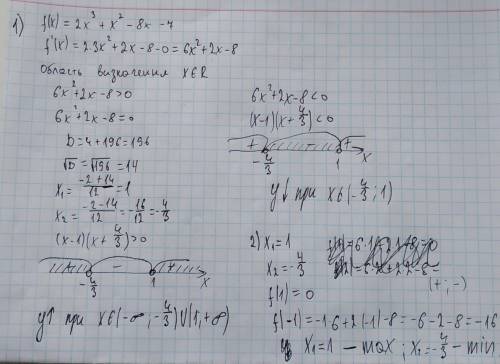 1) f(x) = 2x³ + x² - 8x - 7
f'(x) = 2·3x² + 2x - 8 - 0 = 6x² + 2x - 8
Область визначення x∈R
6x² + 2x - 8 > 0
6x² + 2x - 8 = 0
D = 4 + 196 = 196
√D = √196 = 14
x₁ = (-2+14)/12 = 1
x₂ = (-2-14)/12 = -16/12 = -4/3
(x-1)(x+4/3) > 0
+ - +
-4/3 1 x
y↑ при x∈(-∞; -4/3)∪(1; +∞)
6x² + 2x - 8 < 0
(x-1)(x+4/3) < 0
+ - +
-4/3 1 x
y↓ при x∈(-4/3; 1)
2) x₁ = 1
x₂ = -4/3
f(1) = 0
(+; -)
f(-1) = -1·6 + 2(-1) - 8 = -6 - 2 - 8 = -16
x₁ = 1 - max; x₂ = -4/3 - min